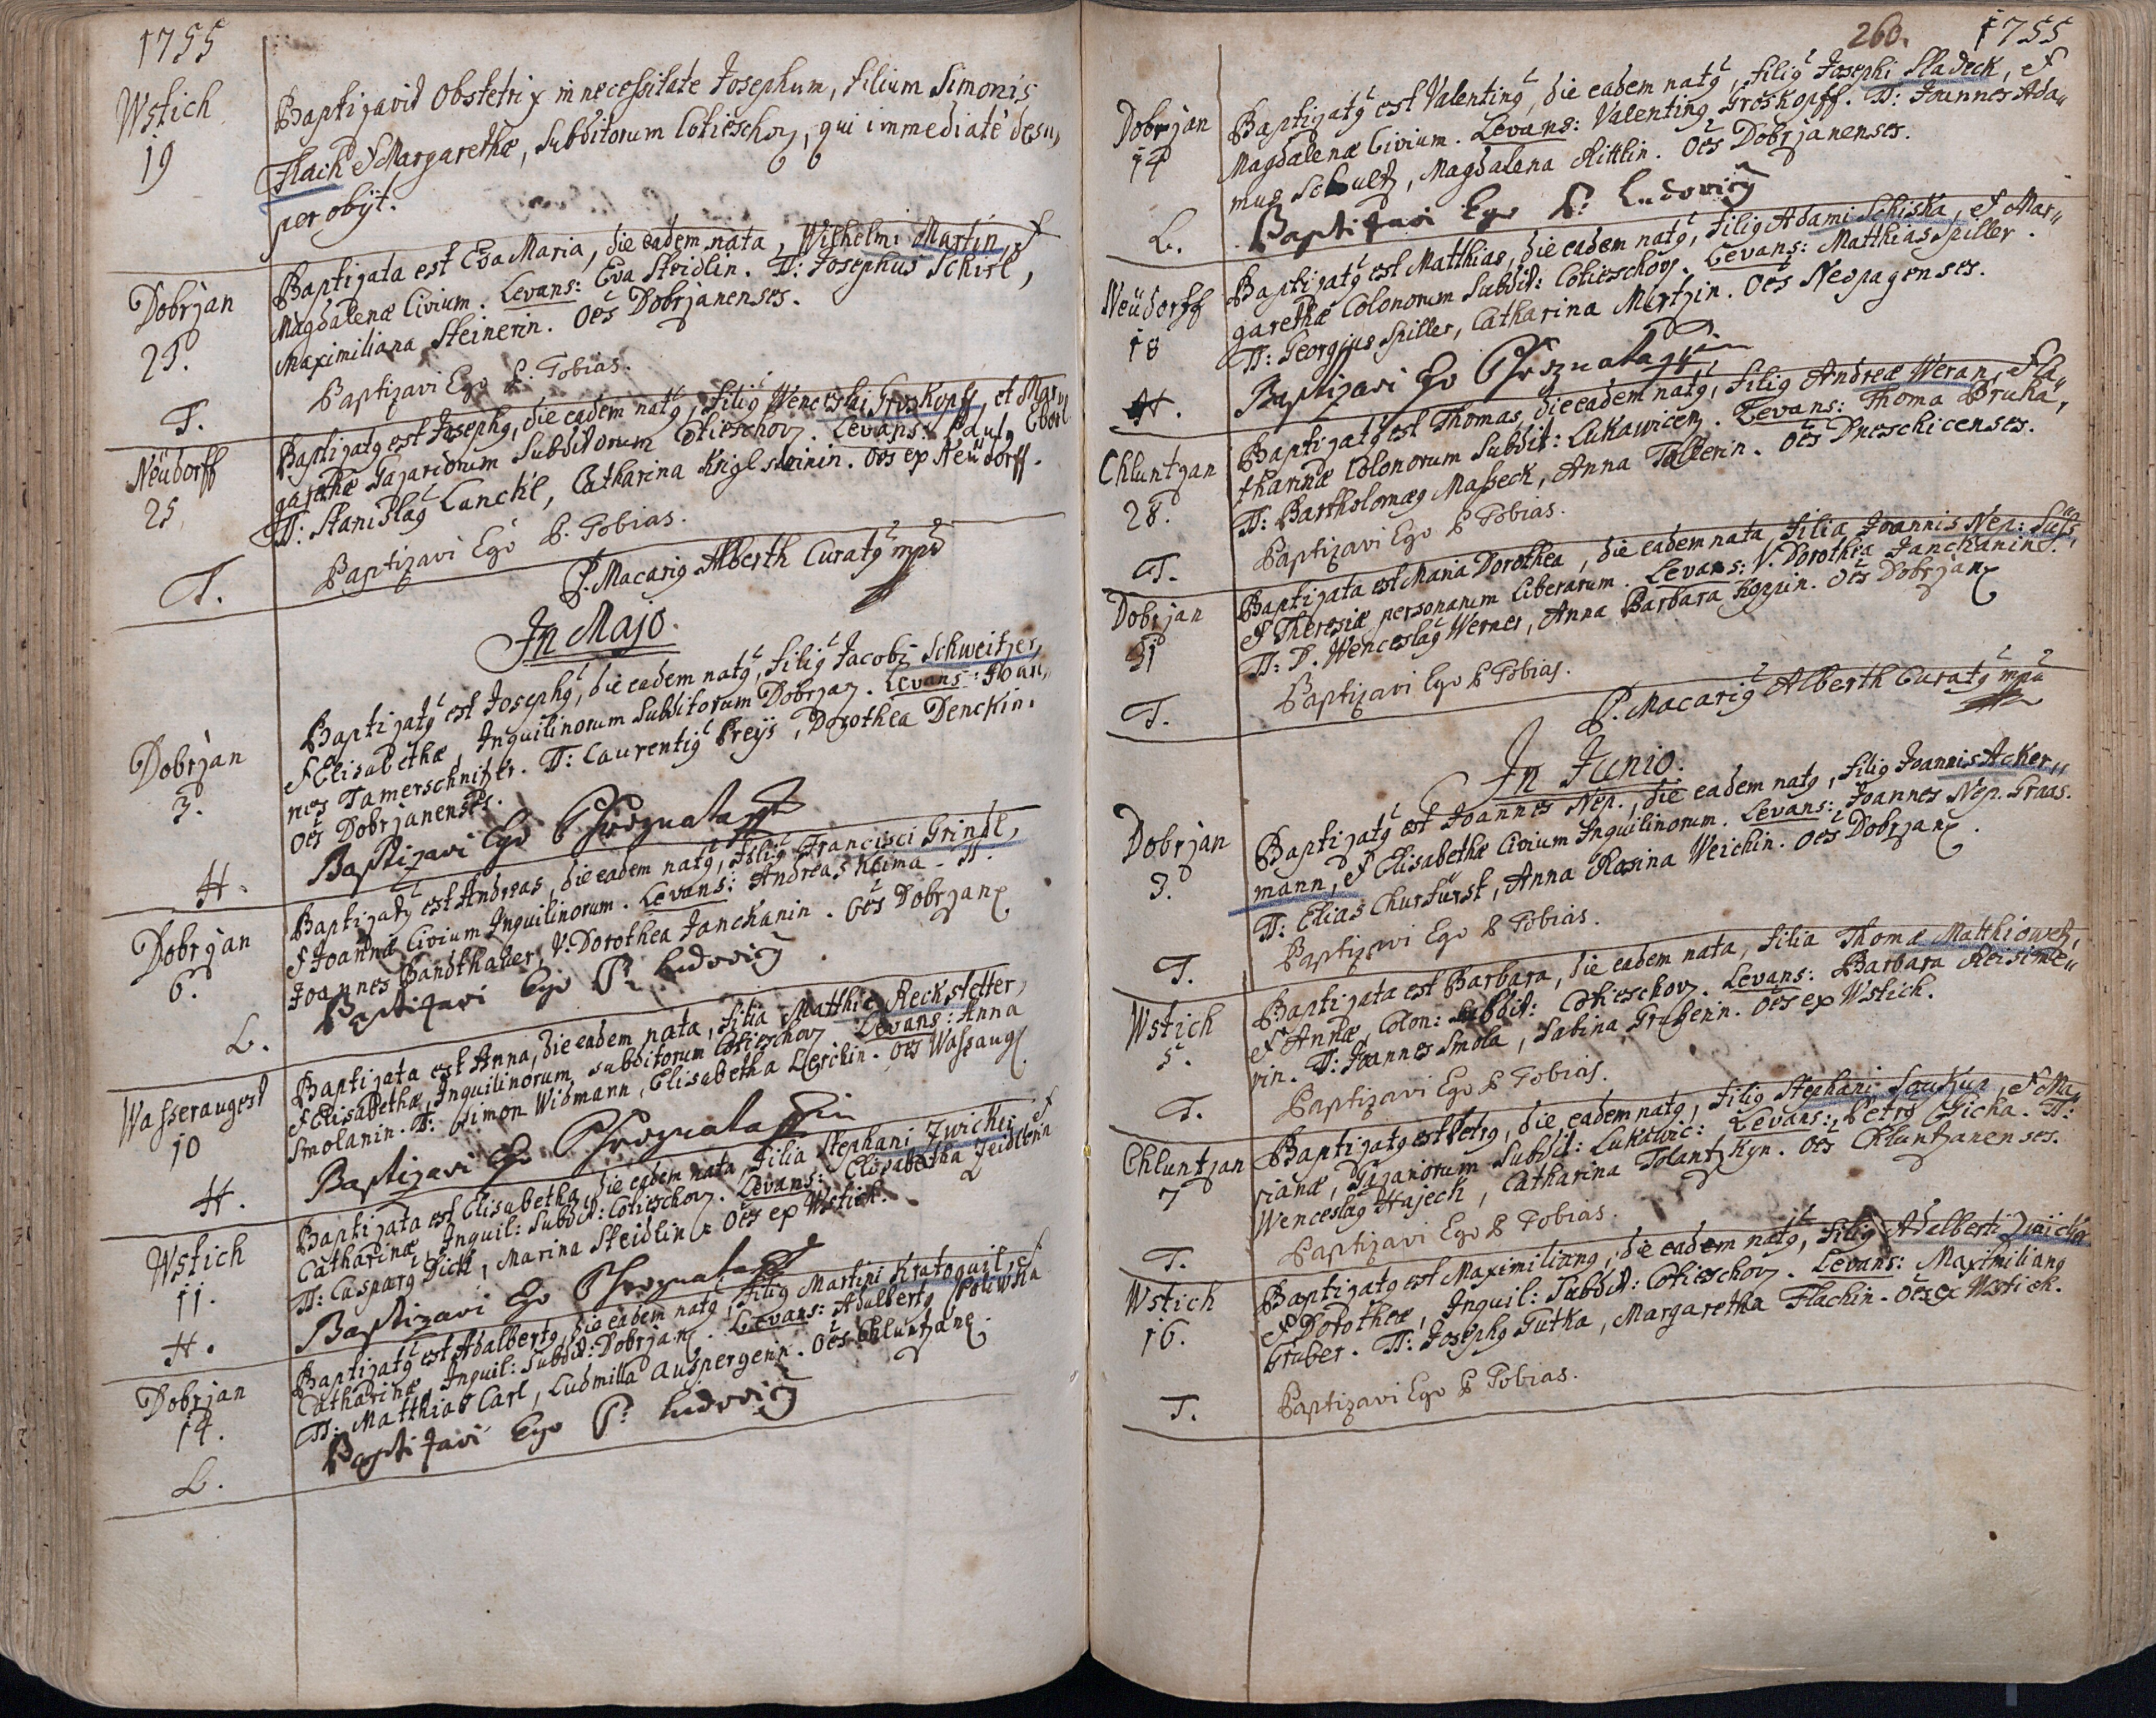 1755
Wstich
19
Baptizavit Obstetrix in necessitate Josephum, filium Simonis
Flach & Margarethæ, Subditorum Cotieschov, qui immediatè desu„
per obijt.
Dobrzan
25.
T.
Baptizata est Eva Maria, die eadem nata, Wilhelmi Martin, &
Magdalenæ Civium. Levans: Eva Steidlin. TT: Josephus Schisl,
Maximiliana Steinerin. Oes Dobrzanenses.
Baptizavi Ego P. Tobias.
Neüdorff
25
T.
Baptizatg est Josephg, die eadem natg, filig Wenceslai Groskopff, et Mar„
garethæ Gazariorum Subditorum Cotieschov. Levans: Paulg Eberl
TT: Stanislag Lanckl, Catharina Kriglsteinin. Oes ex Neüdorff.
Baptizavi Ego P. Tobias.
P. Macarig Alberth Curatg mpa
In Majo.
Dobrzan
3.
H.
Baptizatg est Josephg, die eadem natg, filig Jacobi Schweitzer,
& Elisabethæ, Inquilinorum Subditorum Dobrzan. Levans: Joan„
nes Tamerschnitzer. TT: Laurentig Preÿs, Dorothea Denckin.
Oes Dobrzanenses.
Baptizavi Ego P
Dobrzan
6.
L.
Baptizatg est Andreas, die eadem natg, filig Francisci Grindl,
& Joannæ Civium Inquilinorum. Levans: Andreas Keima. TT.
Joannes Bandthauer, V. Dorothea Janckanin. Oes Dobrzan
Baptizavi Ego P. Ludovicg
Wasseraugest
10
H.
Baptizata est Anna, die eadem nata, filia Matthiæ Reckstetter,
& Elisabethæ, Inquilinorum, subditorum Cotieschov Levans: Anna
Smolanin. TT: Simon Widmann, Elisabetha Lerchin. Oes Wassaug
Baptizavi Ego P
Wstich
11.
H.
Baptizata est Elisabetha, die eadem nata, filia Stephani Zwickii &
Catharinæ, Inquil: Subdit: Cotieschov. Levans: Elisabetha Zeidlerin
TT: Casparg Dickl, Marina Steidlin. Oes ex Wstich.
Baptizavi Ego P
Dobrzan
14.
L.
Baptizatg est Adalbertg, die eadem natg, filig Martini Kratoguil, &
Catharinæ Inquil: Subdit: Dobrzan. Levans: Adalbertg Poliwka
TT: Matthias Carl, Ludmilla Auspergenn. Oes Chluntzan
Baptizavi Ego P. Ludovicg
260. 1755
Dobrzan
14
L.
Baptizatg est Valenting, die eadem natg, filig Josephi Sladeck, &
Magdalenæ Civium. Levans: Valenting Groskopff. TT: Joannes Ada„
mus Schultz, Magdalena Rittlin. Oes Dobrzanenses.
Baptizavi Ego P. Ludovicg
Neüdorff
18
H.
Baptizatg est Matthias, die eadem natg, filig Adami Schiska, & Mar„
garethæ Colonorum Subdit: Cotieschov. Levans: Matthias Spiller.
TT: Georgius Spiller, Catharina Mertzin. Oes Neopagenses.
Baptizavi Ego P
Chluntzan
28.
T.
Baptizatg est Thomas, die eadem natg, filig Andreæ Weran, & Ca„
tharinæ Colonorum Subdit: Lukawicen. Levans: Thoma Druha,
TT: Bartholomæg Masseck, Anna Tallerin. Oes Dneschicenses.
Baptizavi Ego P Tobias.
Dobrzan
31
T.
Baptizata est Maria Dorothea, die eadem nata, filia Joannis Nep: Süss,
& Theresiæ personarum Liberarum. Levans: V. Dorothea Janckanin.
TT: D. Wenceslag Werner, Anna Barbara Koppin. Oes Dobrzan
Baptizavi Ego P Tobias.
P. Macarig Alberth Curatg mpa
In Junio.
Dobrzan
3.
T.
Baptizatg est Joannes Nep., die eadem natg, filig Joannis Acker„
mann, & Elisabethæ Civium Inquilinorum. Levans: Joannes Nep. Graas.
TT: Elias Churfürst, Anna Rosina Weichin. Oes Dobrzan
Baptizavi Ego P Tobias.
Wstich
5.
T.
Baptizata est Barbara, die eadem nata, filia Thomæ Matthiowetz,
& Annæ, Colon: Subdit: Cotieschov. Levans: Barbara Reisime„
rin. TT: Joannes Smola, Sabina Gruberin. Oes ex Wstich.
Baptizavi Ego P Tobias.
Chluntzan
7
T.
Baptizatg est Petrg, die eadem natg, filig Stephani Soukup, & Ma„
rianæ, Gazariorum Subdit: Lukawic: Levans: Petrg Cicha. TT:
Wenceslag Hajeck, Catharina Tolantzkyn. Oes Chluntzanenses.
Baptizavi Ego P Tobias.
Wstich
16.
T.
Baptizatg est Maximiliang, die eadem natg, filig Adalberti
& Dorotheæ, Inquil: Subdit: Cotieschov. Levans: Maximiliang
Gruber. TT: Josephg Gutka, Margaretha Flachin. Oes ex Wstich.
Baptizavi Ego P Tobias.